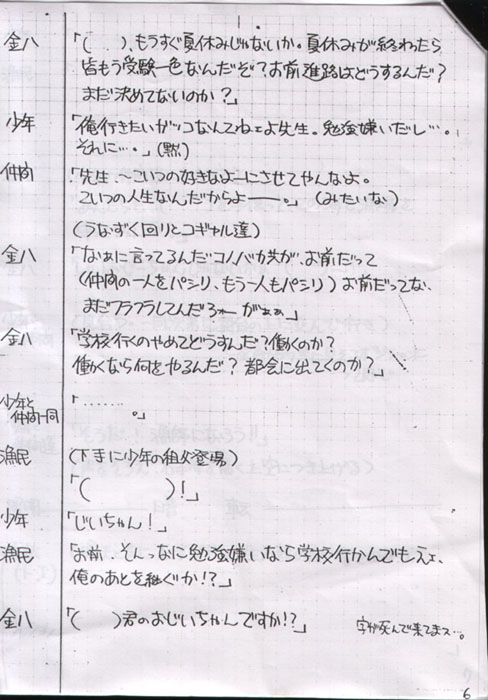 金八「(　　)、もうすぐ夏休みじゃないか。夏休みが終わったら
皆もう受験一色なんだぞ?お前進路はどうするんだ?
まだ決めてないのか?」
少年「俺行きたいガッコなんてねェよ先生。勉強嫌いだし…。
それに…。」(黙)
仲間「先生、〜こいつの好きなよーにさせてやんなよ。
こいつの人生なんだからよ――。」(みたいな)
(うなずく回りとコギャル達)
金八「なぁに言ってるんだコノバカ共が、お前だって
(仲間の一人をパシリ、もう一人もパシリ)お前だってな、
まだフラフラしてんだろォー がぁぁ」
金八「学校行くのやめてどうすんだ?働くのか?
働くなら何をやるんだ?都会に出てくのか?」
少年と
仲間一同「……。」
漁民(下手に少年の祖父登場)
「(　　　　)!」
少年「じいちゃん!」
漁民「お前、そんっなに勉強嫌いなら学校行かんでもえェ、
俺のあとを継ぐか!?」
金八「(　　)君のおじいちゃんですか!?」
字が死んで来てまス…。
6